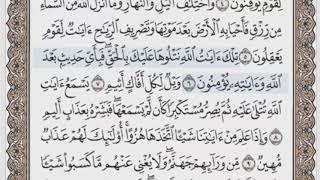 لِقَوْمٍ يُوقِنُونَ ۝٤ وَاخْتِلَافِ الَّيْلِ وَالنَّهَارِ وَمَا أَنزَلَ اللَّهُ مِنَ السَّمَاءِ
مِن رِّزْقٍ فَأَحْيَا بِهِ الْأَرْضَ بَعْدَ مَوْتِهَا وَتَصْرِيفِ الرِّيَاحِ ءَايَاتٌ لِّقَوْمٍ
يَعْقِلُونَ ۝٥ تِلْكَ ءَايَاتُ اللَّهِ نَتْلُوهَا عَلَيْكَ بِالْحَقِّ فَبِأَيِّ حَدِيثٍ بَعْدَ
اللَّهِ وَءَايَاتِهِ يُؤْمِنُونَ ۝٦ وَيْلٌ لِّكُلِّ أَفَّاكٍ أَثِيمٍ ۝٧ يَسْمَعُ ءَايَاتِ
اللَّهِ تُتْلَىٰ عَلَيْهِ ثُمَّ يُصِرُّ مُسْتَكْبِرًا كَأَن لَّمْ يَسْمَعْهَا فَبَشِّرْهُ بِعَذَابٍ أَلِيمٍ
۝٨ وَإِذَا عَلِمَ مِنْ ءَايَاتِنَا شَيْئًا اتَّخَذَهَا هُزُوًا أُولَٰئِكَ لَهُمْ عَذَابٌ
مُّهِينٌ ۝٩ مِّن وَرَائِهِمْ جَهَنَّمُ وَلَا يُغْنِي عَنْهُم مَّا كَسَبُوا شَيْئًا